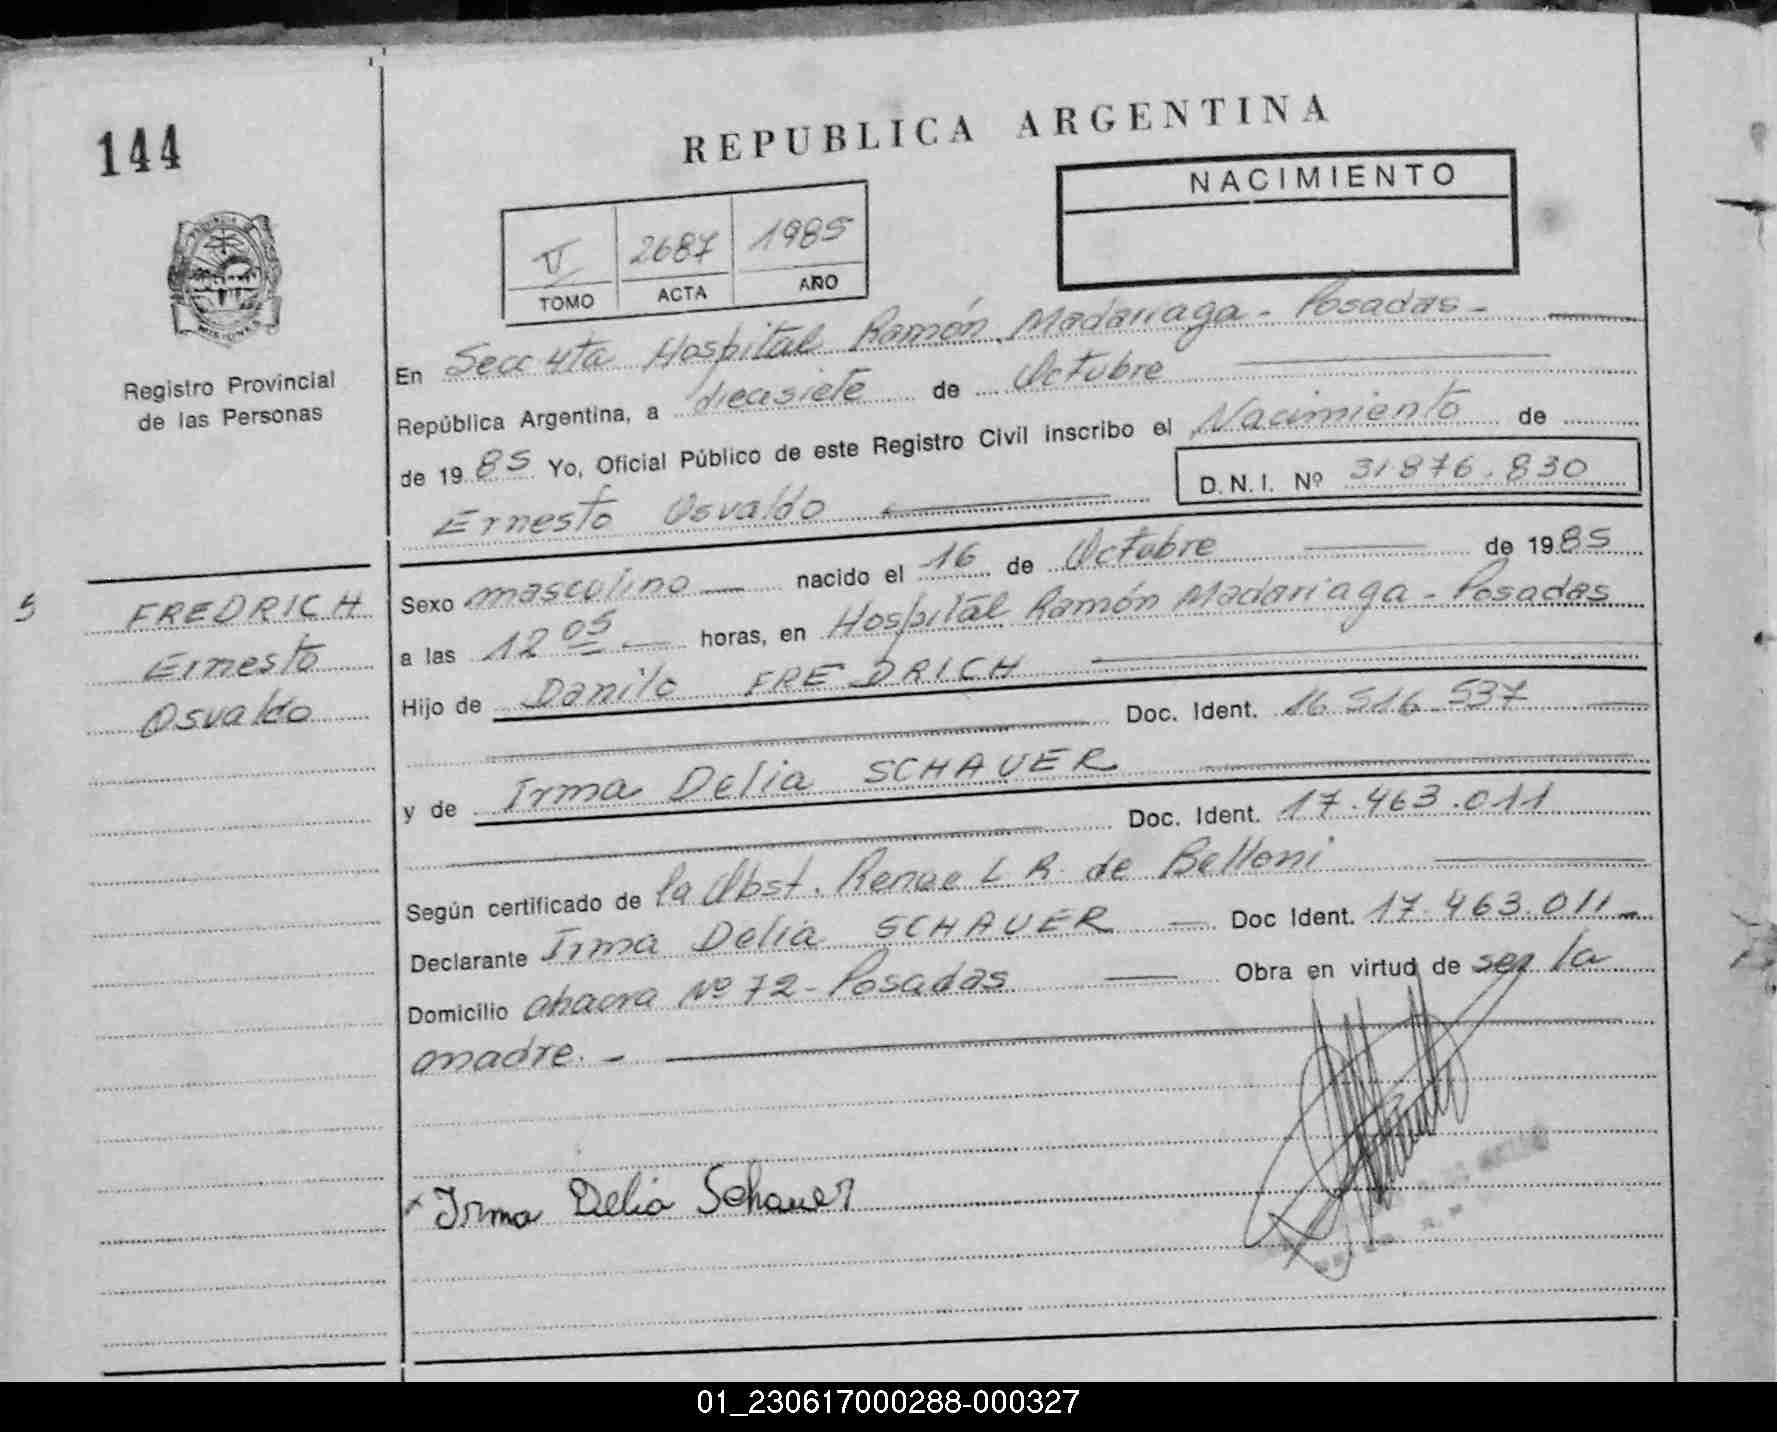 144
REPUBLICA ARGENTINA
NACIMIENTO
V 2687 1985
TOMO ACTA AÑO
Registro Provincial
de las Personas
En Secc 4ta Hospital Ramón Madariaga - Posadas -
República Argentina, a diecisiete de Octubre
de 19 85 Yo, Oficial Público de este Registro Civil inscribo el Nacimiento de
Ernesto Osvaldo D.N.I. Nº 31.876.830
5 FREDRICH
Ernesto
Osvaldo
Sexo masculino — nacido el 16 de Octubre — de 1985
a las 12 05 — horas, en Hospital Ramón Madariaga - Posadas
Hijo de Danilo FREDRICH
Doc. Ident. 16 516 537
y de Irma Delia SCHAUER
Doc. Ident. 17.463.011
Según certificado de la Obst. Renee L R. de Belloni
Declarante Irma Delia SCHAUER — Doc Ident. 17.463.011
Domicilio chacra Nº 72 - Posadas — Obra en virtud de ser la
madre. -
x Irma Delia Schauer
01_230617000288-000327